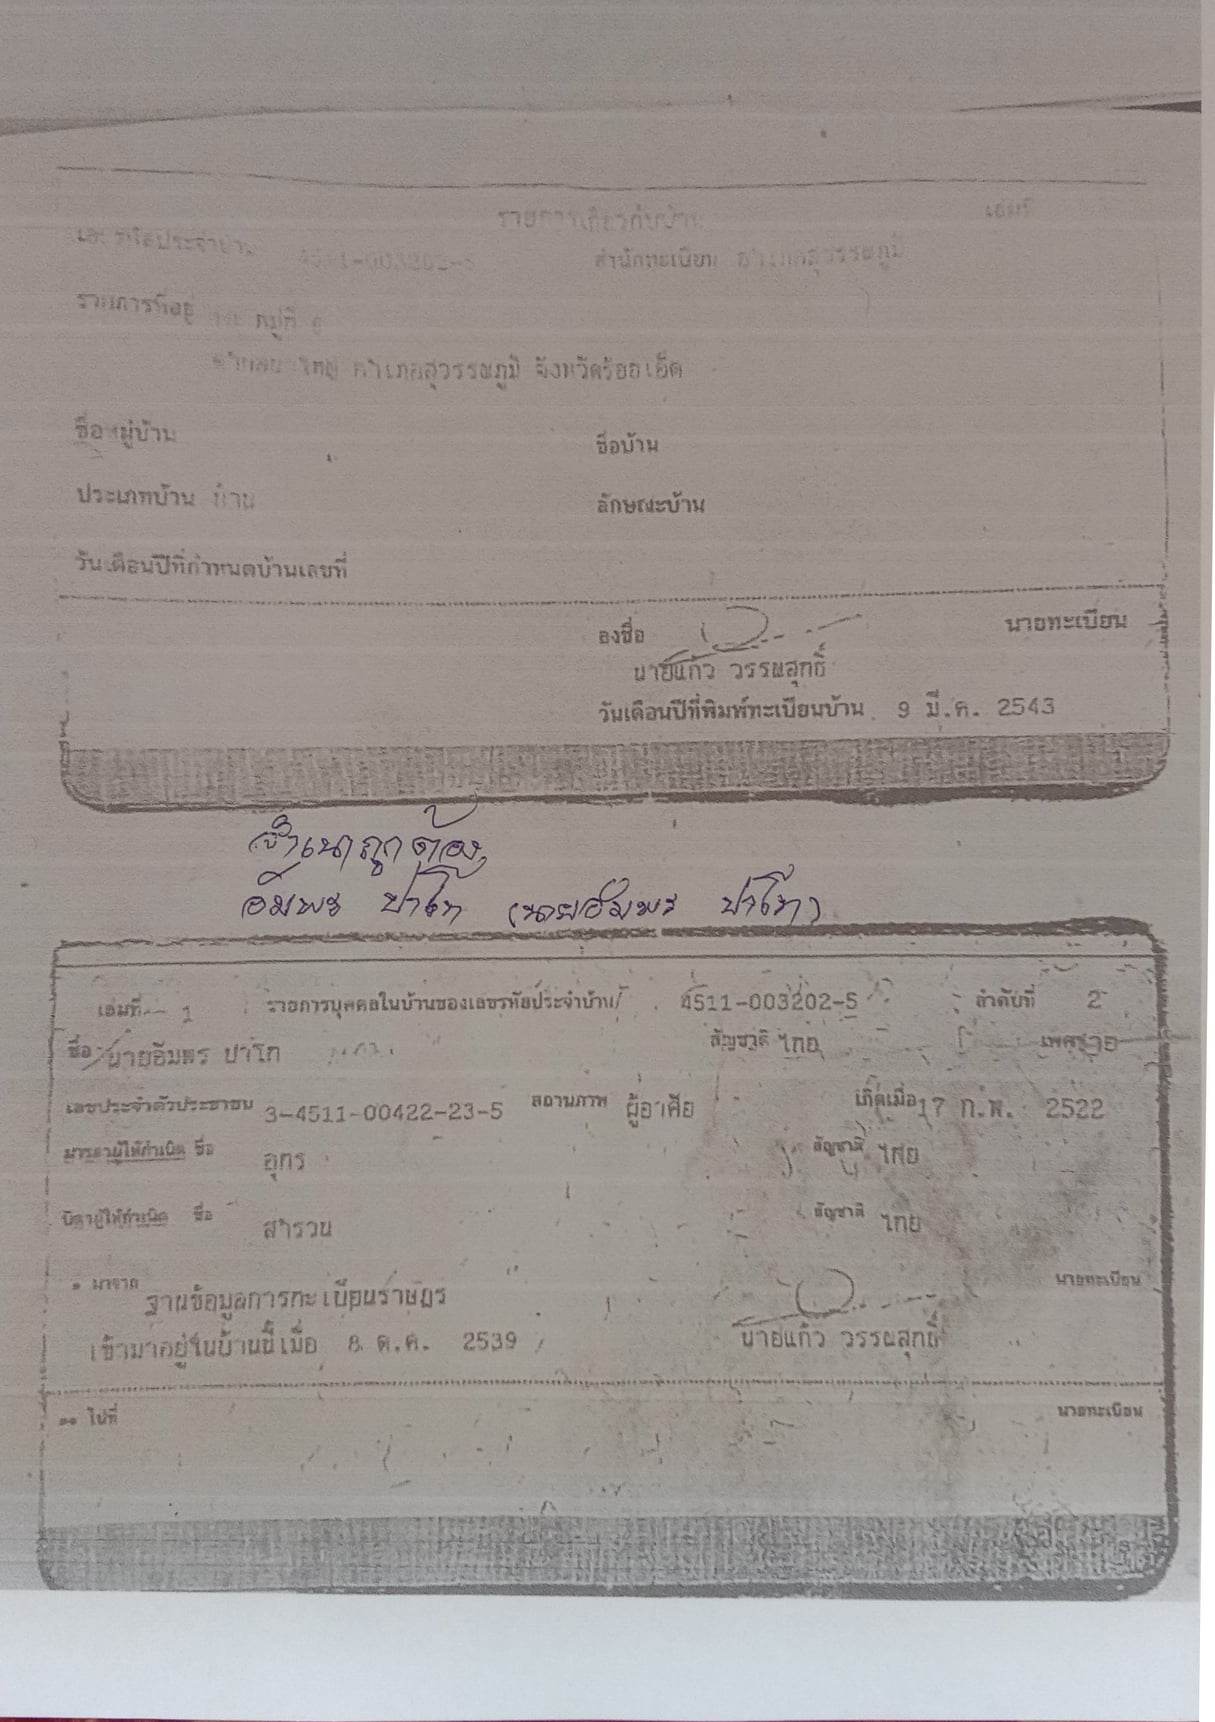 รายการเกี่ยวกับบ้าน เล่มที่
เลขรหัสประจำบ้าน 4511-003202-5 สำนักทะเบียน อำเภอสุวรรณภูมิ
รายการที่อยู่ หมู่ที่
อำเภอสุวรรณภูมิ จังหวัดร้อยเอ็ด
ชื่อหมู่บ้าน ชื่อบ้าน
ประเภทบ้าน บ้าน ลักษณะบ้าน
วันเดือนปีที่กำหนดบ้านเลขที่
ลงชื่อ นายทะเบียน
นายแก้ว วรรณสุทธิ์
วันเดือนปีที่พิมพ์ทะเบียนบ้าน 9 มี.ค. 2543
สำเนาถูกต้อง
อัมพร ปาโก (นายอัมพร ปาโก)
เล่มที่ 1 รายการบุคคลในบ้านของเลขรหัสประจำบ้าน 4511-003202-5 ลำดับที่ 2
ชื่อ นายอัมพร ปาโก สัญชาติ ไทย เพศ ชาย
เลขประจำตัวประชาชน 3-4511-00422-23-5 สถานภาพ ผู้อาศัย เกิดเมื่อ 17 ก.พ. 2522
มารดาผู้ให้กำเนิด ชื่อ อุทร สัญชาติ ไทย
บิดาผู้ให้กำเนิด ชื่อ สำรวน สัญชาติ ไทย
* มาจาก ฐานข้อมูลการทะเบียนราษฎร นายทะเบียน
เข้ามาอยู่ในบ้านนี้เมื่อ 8 ต.ค. 2539 นายแก้ว วรรณสุทธิ์
** ไปที่ นายทะเบียน